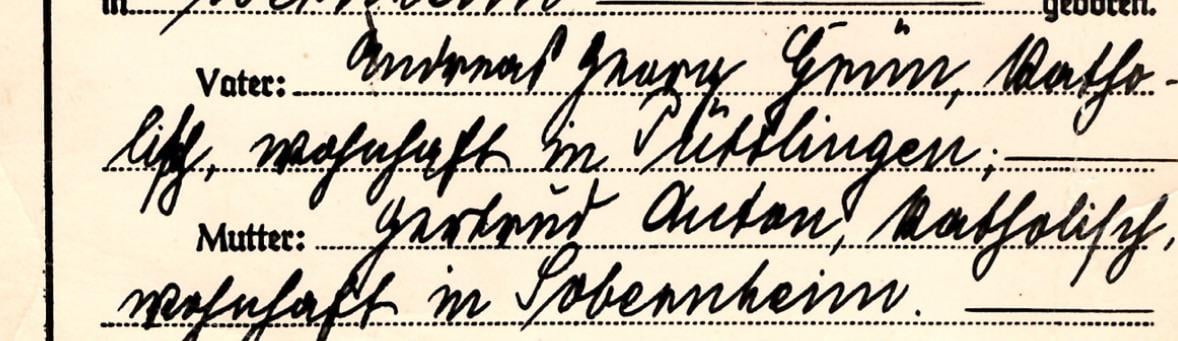 in geboren.
Vater: Andreas Georg Grün, katho-
lisch, wohnhaft in Püttlingen;
Mutter: Gertrud Anton, katholisch,
wohnhaft in Sobernheim.